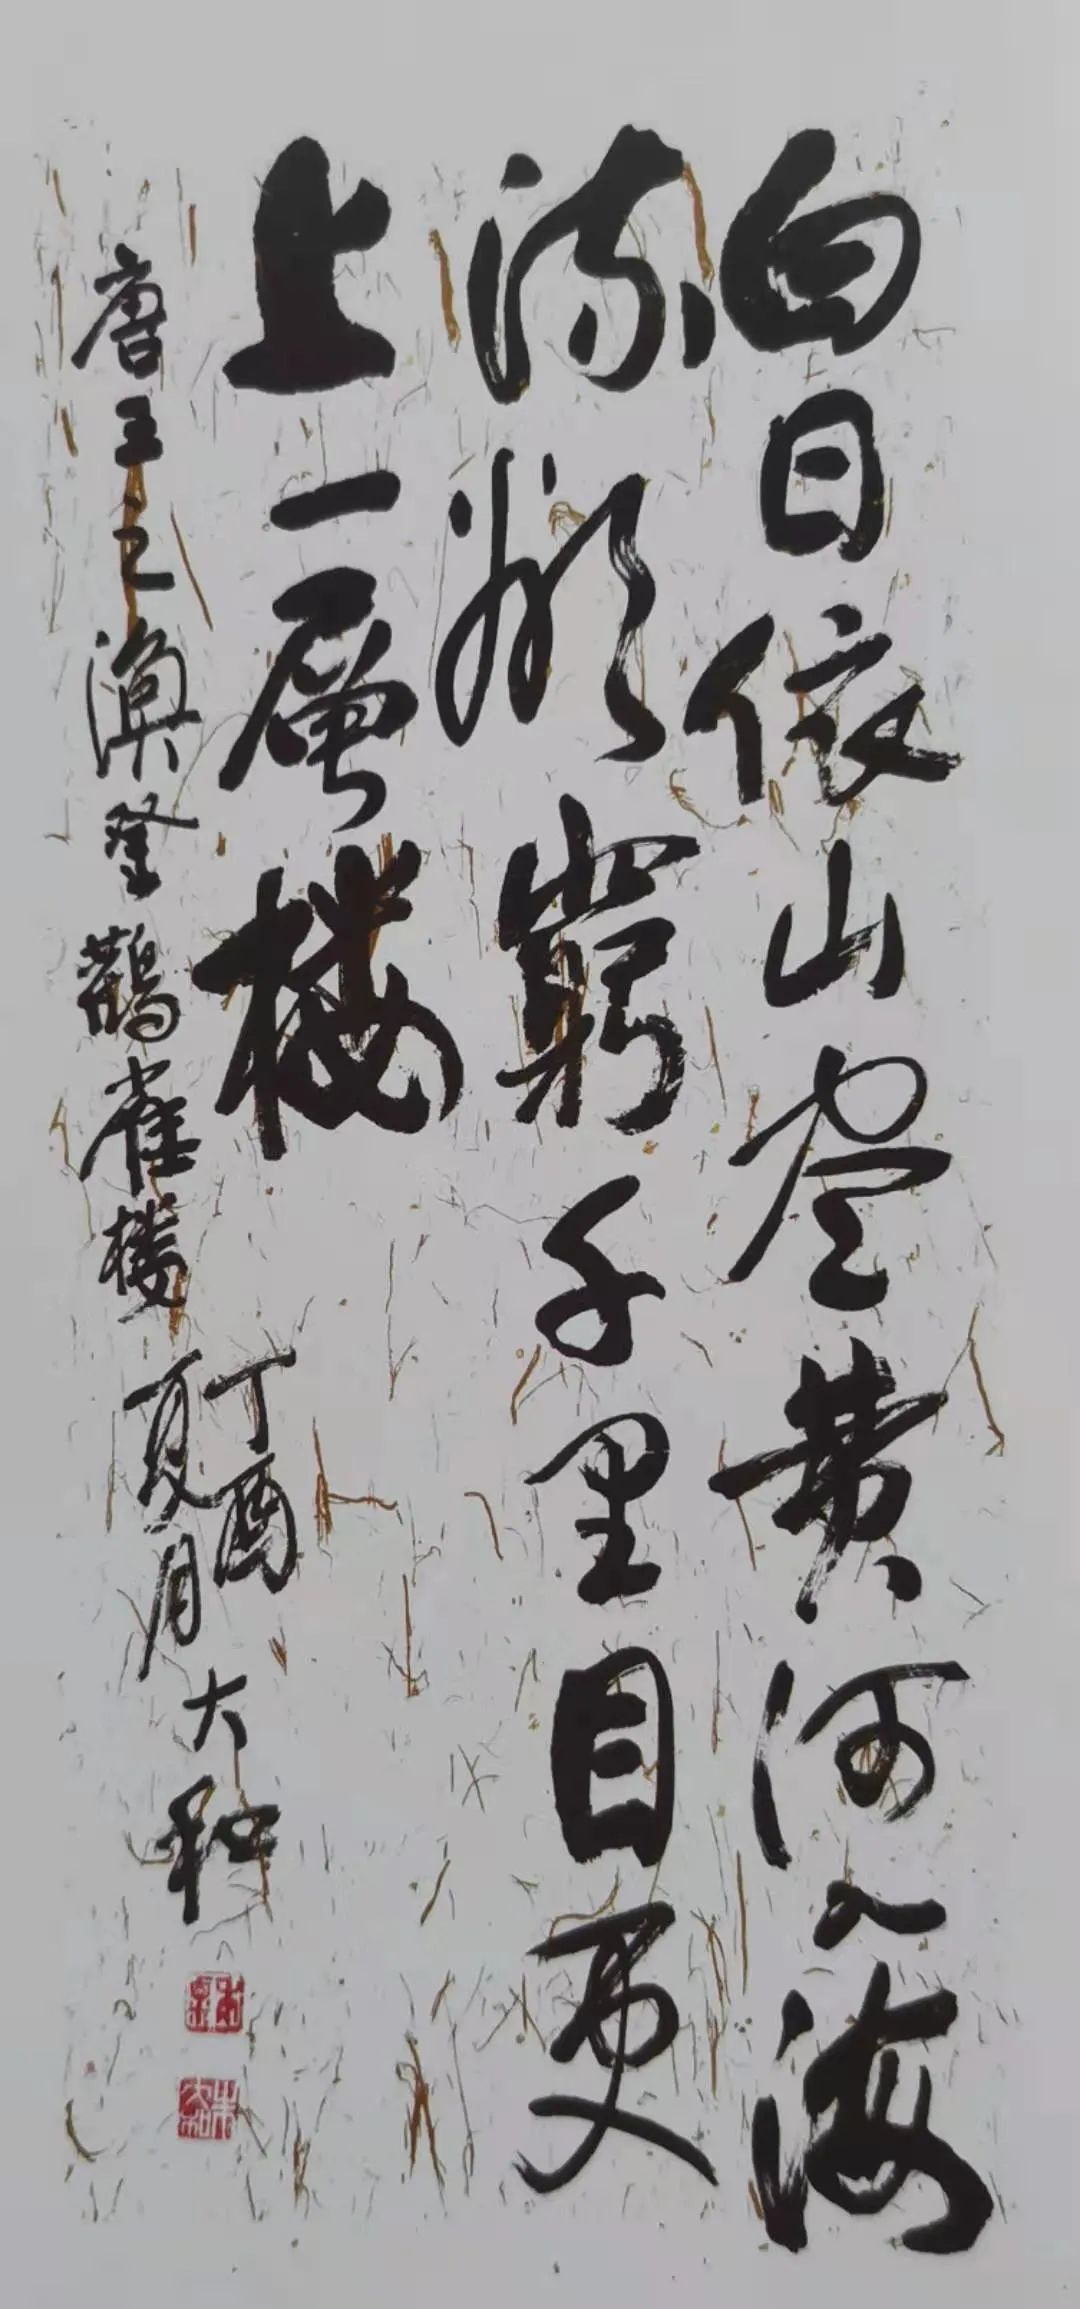 白日依山尽黄河入海
流欲窮千里目更
上一層楼
唐王之渙登鸛雀楼
丁酉
夏月
大和